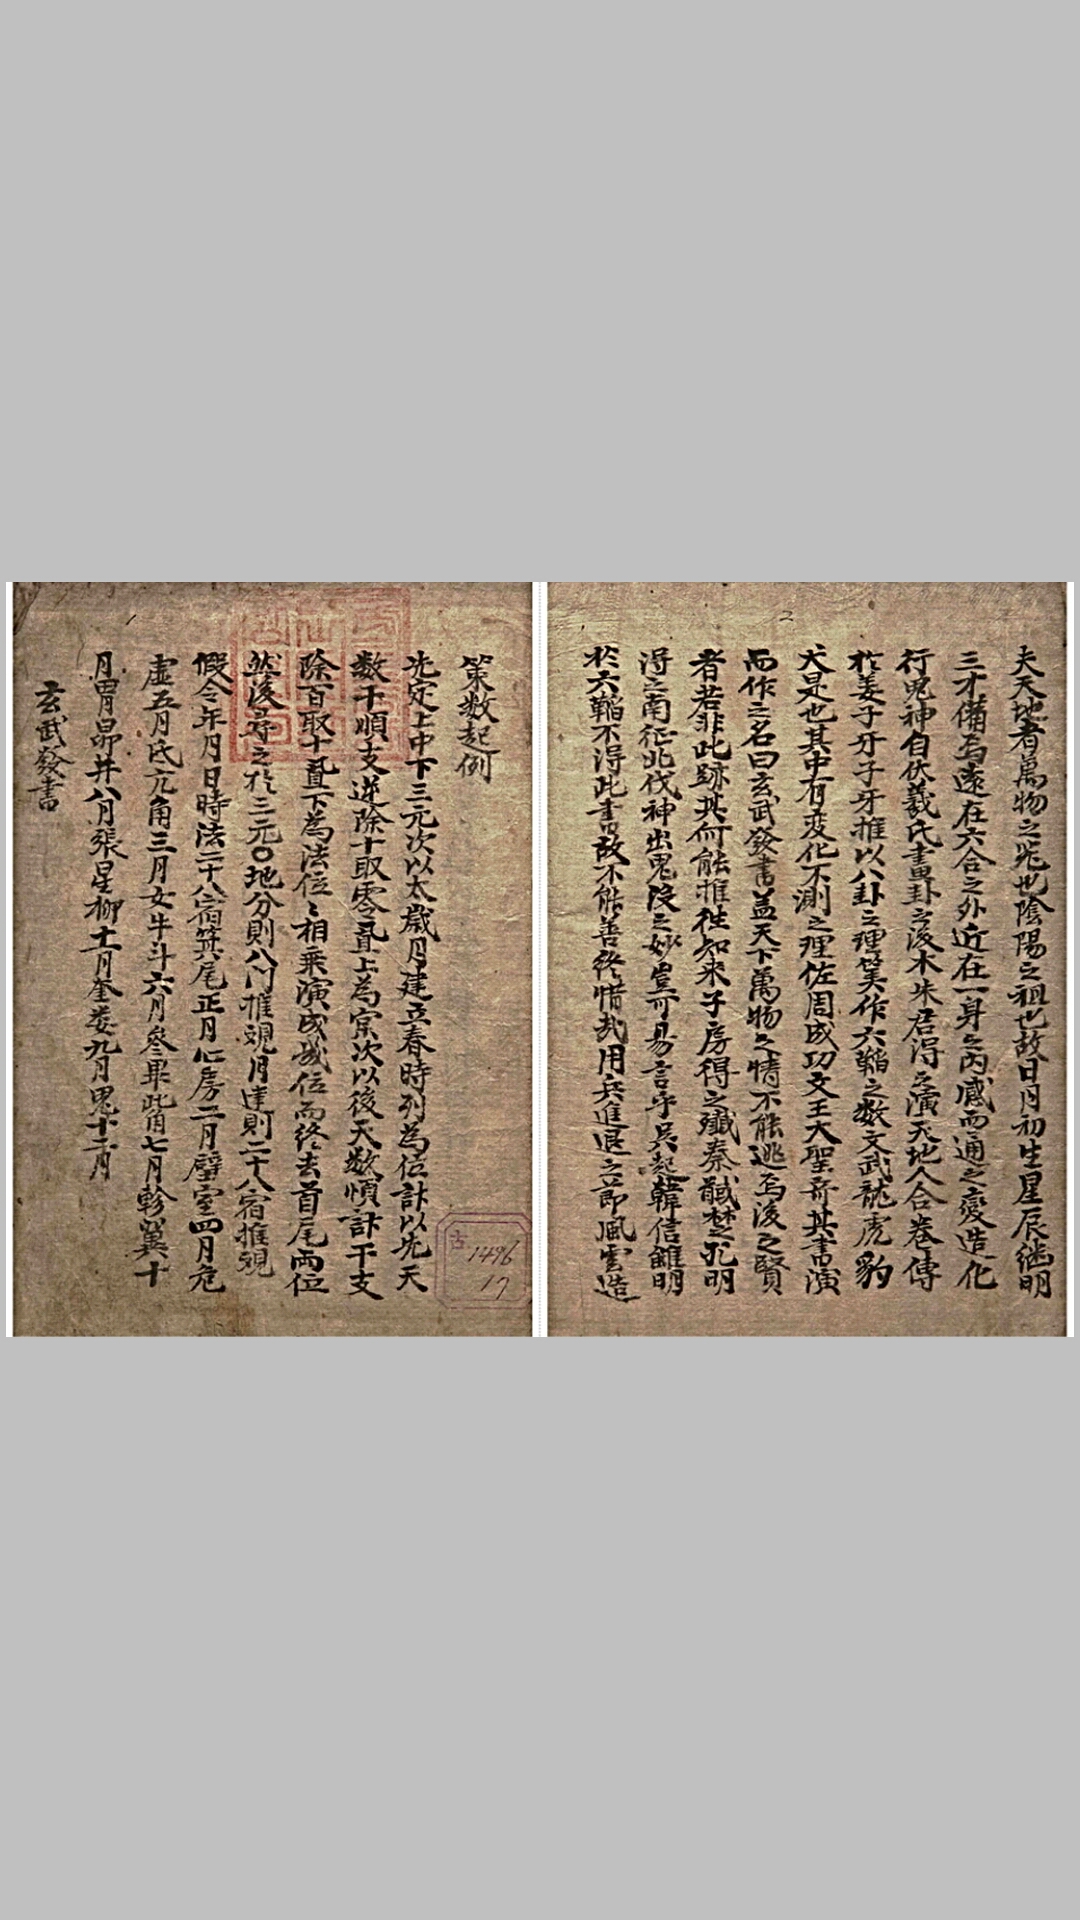 夫天地者萬物之宗也陰陽之祖也故日月初生星辰継明
三才備焉遠在六合之外近在一身之內感而通之變造化
行鬼神自伏羲氏畫卦之後木朱君得之演天地人合卷傳
於姜子牙子牙推以八卦之理筭作六韜之数文武龍虎豹
犬是也其中有変化不測之理佐周成功文王大聖奇其書演
而作之名曰玄武發書盖天下萬物之情不能逃焉後之賢
者若非此跡其何能推徃知来子房得之殲秦馘楚孔明
得之南征北伐神出鬼没之妙豈可易言乎吳起韓信雖明
於六韜不得此書故不能善终惜哉用兵進退之節風雲造
2
策数起例
先定上中下三元次以太歲月建立春時列為位計以先天
数干順支逆除十取零置上為宗次以後天数順計干支
除百取十置下為法位〻相乗演成幾位而终去首尾兩位
然後尋之於三元〇地分則八门推覌月建則二十八宿推覌
假令年月日時法二十八宿箕尾正月心房二月壁室四月危
虚五月氐亢角三月女牛斗六月參畢觜七月軫翼十
月胃昴井八月張星柳十一月奎婁九月鬼十二月
玄武發書
古
1496
17